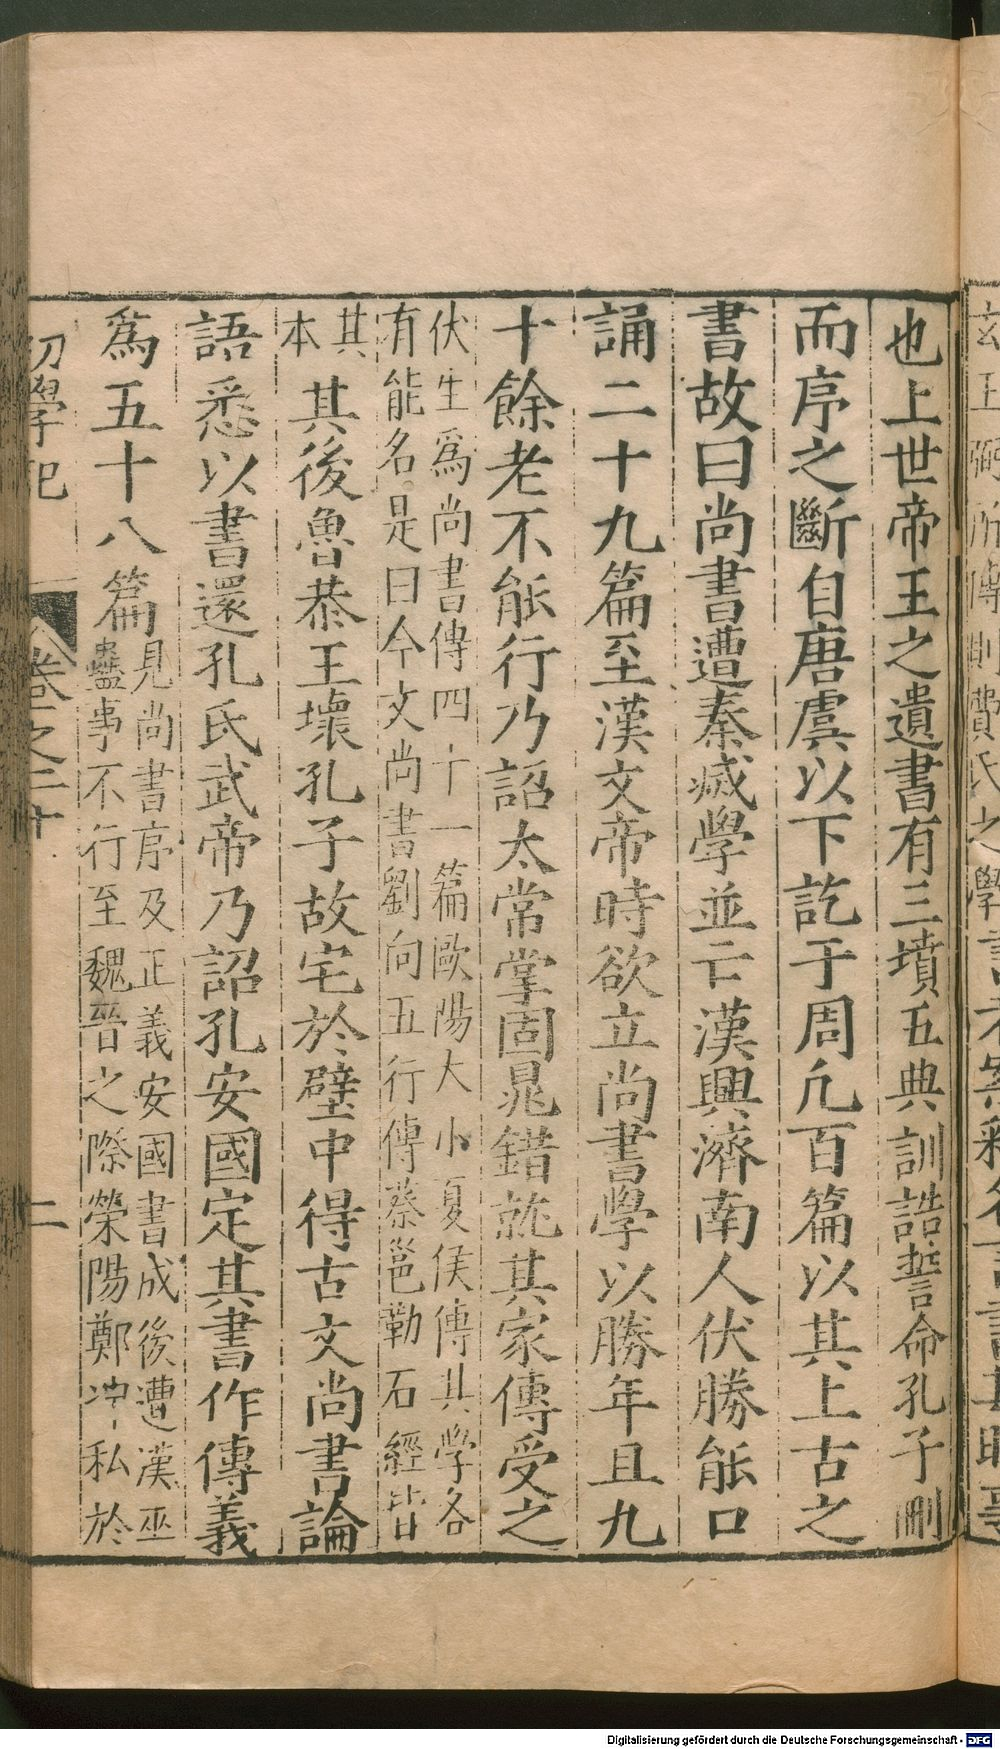 也上世帝王之遺書有三墳五典訓誥誓命孔子刪
而序之斷自唐虞以下訖于周凡百篇以其上古之
書故曰尚書遭秦滅學並亡漢興濟南人伏勝能口
誦二十九篇至漢文帝時欲立尚書學以勝年且九
十餘老不能行乃詔太常掌固晁錯就其家傳受之
伏生為尚書傳四十一篇歐陽大小夏侯傳其學各
有能名是曰今文尚書劉向五行傳蔡邕勒石經皆
其
本
其後魯恭王壞孔子故宅於壁中得古文尚書論
語悉以書還孔氏武帝乃詔孔安國定其書作傳義
為五十八篇
見尚書序及正義安國書成後遭漢巫
蠱事不行至魏晉之際滎陽鄭沖私於
初學記 卷之二十 二
Digitalisierung gefördert durch die Deutsche Forschungsgemeinschaft - DFG